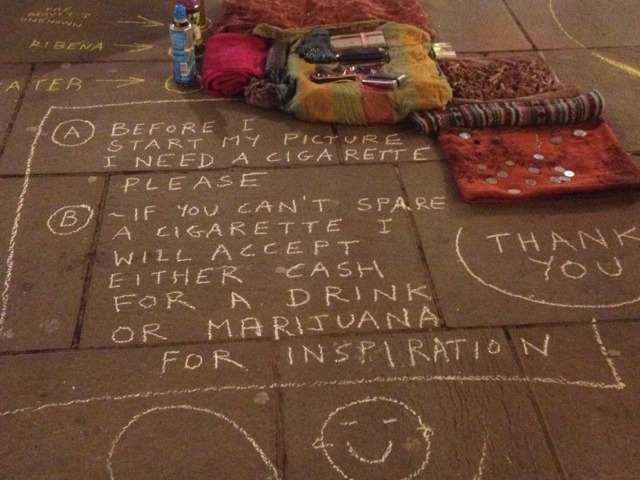 UNKNOWN
RIBENA
ATER
A BEFORE I
START MY PICTURE
I NEED A CIGARETTE
PLEASE
B ~ IF YOU CAN'T SPARE
A CIGARETTE I
WILL ACCEPT
EITHER CASH
FOR A DRINK
OR MARIJUANA
FOR INSPIRATION
THANK
YOU